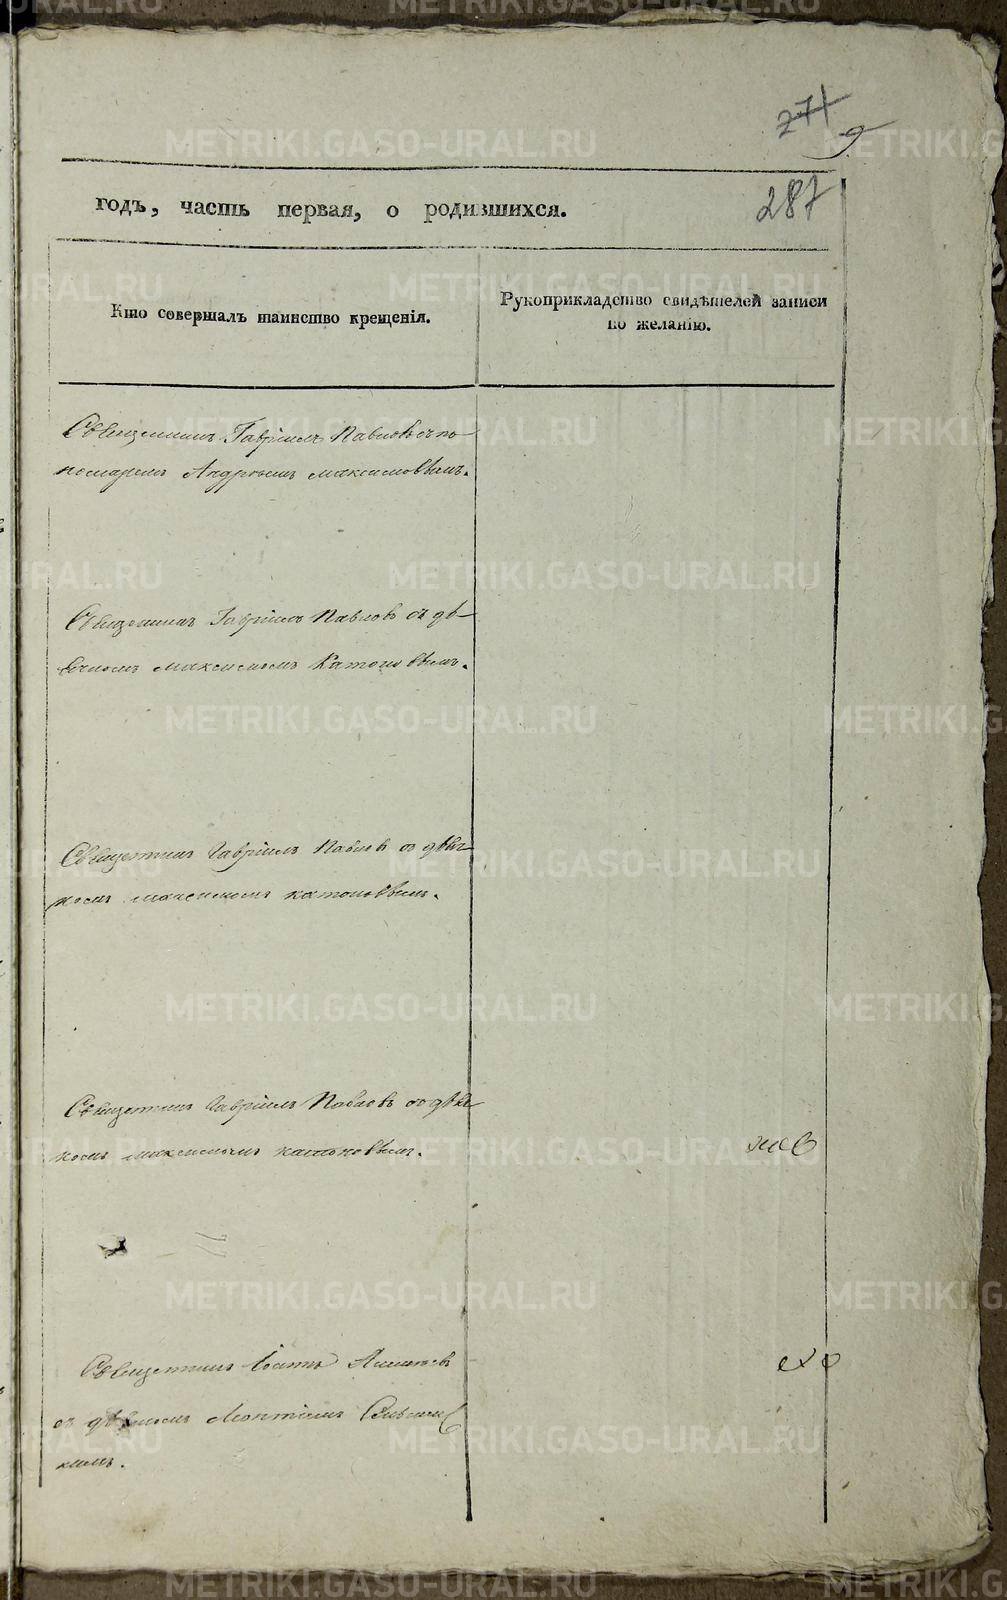 271
287
годъ, часть первая, о родившихся.
Кто совершалъ таинство крещенія.
Рукоприкладство свидѣтелей записи
по желанію.
Священникъ Гавріилъ Павловъ съ по-
номаремъ Андреемъ Максимовымъ.
Священникъ Гавріилъ Павловъ съ дья-
Максимомъ Катоновымъ.
Священникъ Гавріилъ Павловъ съ дьяч-
комъ Максимомъ Катоновымъ.
Священникъ Гавріилъ Павловъ съ дьяч-
комъ Максимомъ Катоновымъ.
Священникъ
съ дьячкомъ
кимъ.
METRIKI.GASO-URAL.RU